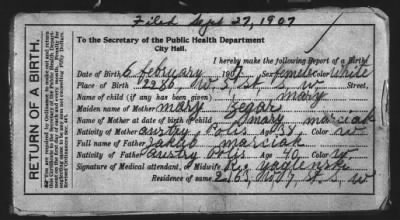 Filed Sept 27, 1907
To the Secretary of the Public Health Department
City Hall.
I hereby make the following Report of a Birth
Date of Birth 6 february 1907 Sex femele Color white
Place of Birth 2280 W. 5 st. S. W Street,
Name of child (if any has been given) mary
Maiden name of Mother mary Zegar
Name of Mother at date of birth of Child mary marciak
Nativity of Mother austry Polis Age 38 Color W
Full name of Father Jakob marciak
Nativity of Father austry Polis Age 40 Color W
Signature of Medical attendant, or Midwife K. Yaglenski
Residence of same 2163 W. 7 st. S. W
RETURN OF A BIRTH.